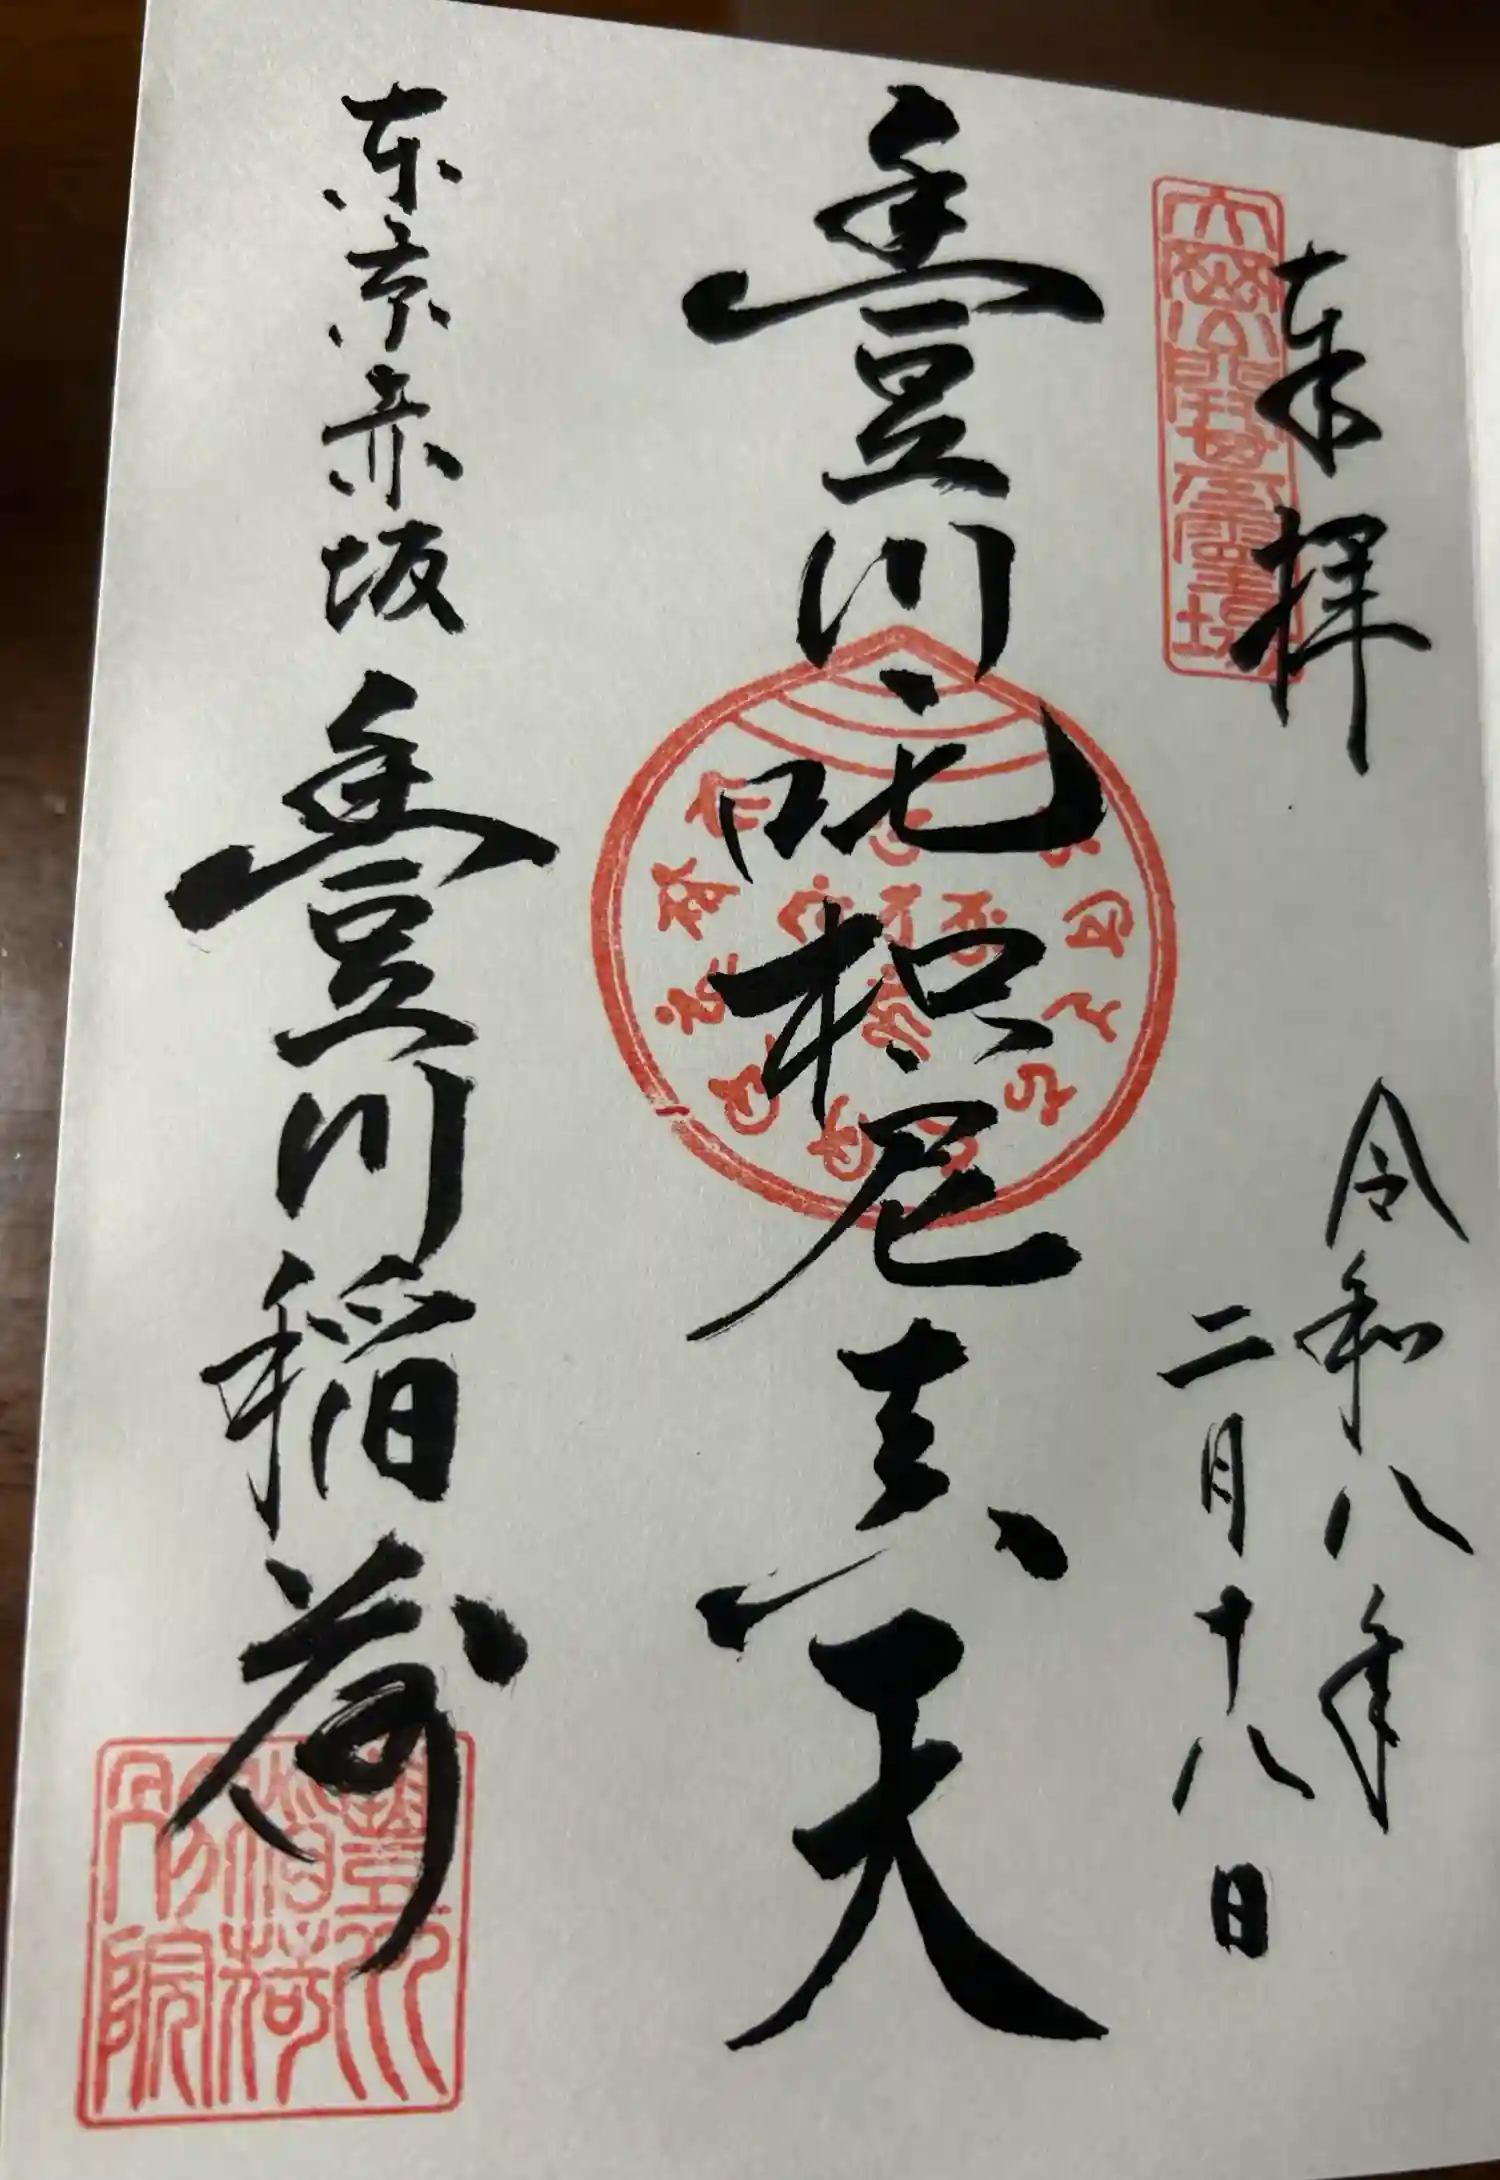 奉拝
令和八年
二月十八日
豊川吒枳尼真天
東京赤坂
豊川稲荷
豊川稲荷別院